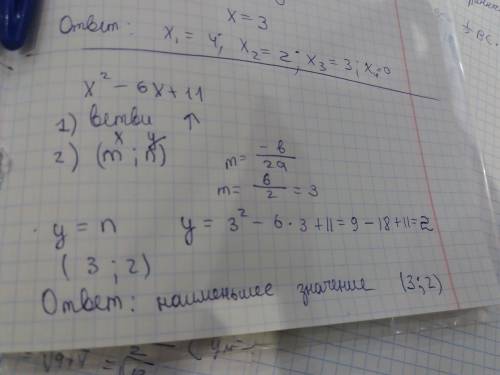 x = 3
Ответ: x₁ = 4; x₂ = 2; x₃ = 3; x₄=0
x² - 6x + 11
1) ветви ↑
x y
2) (m ; n)
m = -b/2a
m = 6/2 = 3
y = n y = 3² - 6 · 3 + 11 = 9 - 18 + 11 = 2
(3 ; 2)
Ответ: наименьшее значение (3;2)